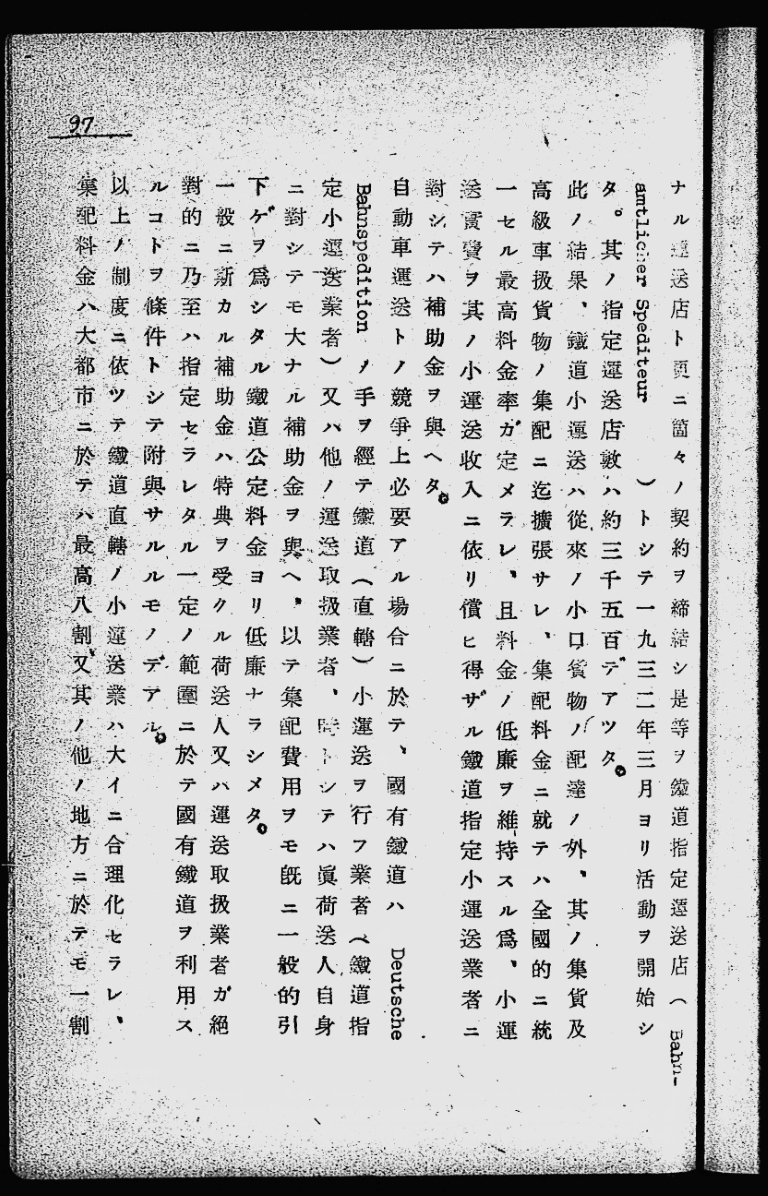 ナル運送店ト更ニ箇々ノ契約ヲ締結シ是等ヲ鐵道指定運送店（Bahn-
amtlicher Spediteur）トシテ一九三二年三月ヨリ活動ヲ開始シ
タ。其ノ指定運送店數ハ約三千五百デアツタ。
此ノ結果、鐵道小運送ハ從來ノ小口貨物ノ配達ノ外、其ノ集貨及
高級車扱貨物ノ集配ニ迄擴張サレ、集配料金ニ就テハ全國的ニ統
一セル最高料金率ガ定メラレ、且料金ノ低廉ヲ維持スル爲、小運
送實費ヲ其ノ小運送收入ニ依リ償ヒ得ザル鐵道指定小運送業者ニ
對シテハ補助金ヲ與ヘタ。
自動車運送トノ競爭上必要アル場合ニ於テ、國有鐵道ハ Deutsche
Bahnspedition ノ手ヲ經テ鐵道（直轄）小運送ヲ行フ業者（鐵道指
定小運送業者）又ハ他ノ運送取扱業者、時トシテハ眞荷送人自身
ニ對シテモ大ナル補助金ヲ與ヘ、以テ集配費用ヲモ既ニ一般的引
下ゲヲ爲シタル鐵道公定料金ヨリ低廉ナラシメタ。
一般ニ斯カル補助金ハ特典ヲ受クル荷送人又ハ運送取扱業者ガ絕
對的ニ乃至ハ指定セラレタル一定ノ範圍ニ於テ國有鐵道ヲ利用ス
ルコトヲ條件トシテ附與サルルモノデアル。
以上ノ制度ニ依ツテ鐵道直轄ノ小運送業ハ大イニ合理化セラレ、
集配料金ハ大都市ニ於テハ最高八割、又其ノ他ノ地方ニ於テモ一割
97